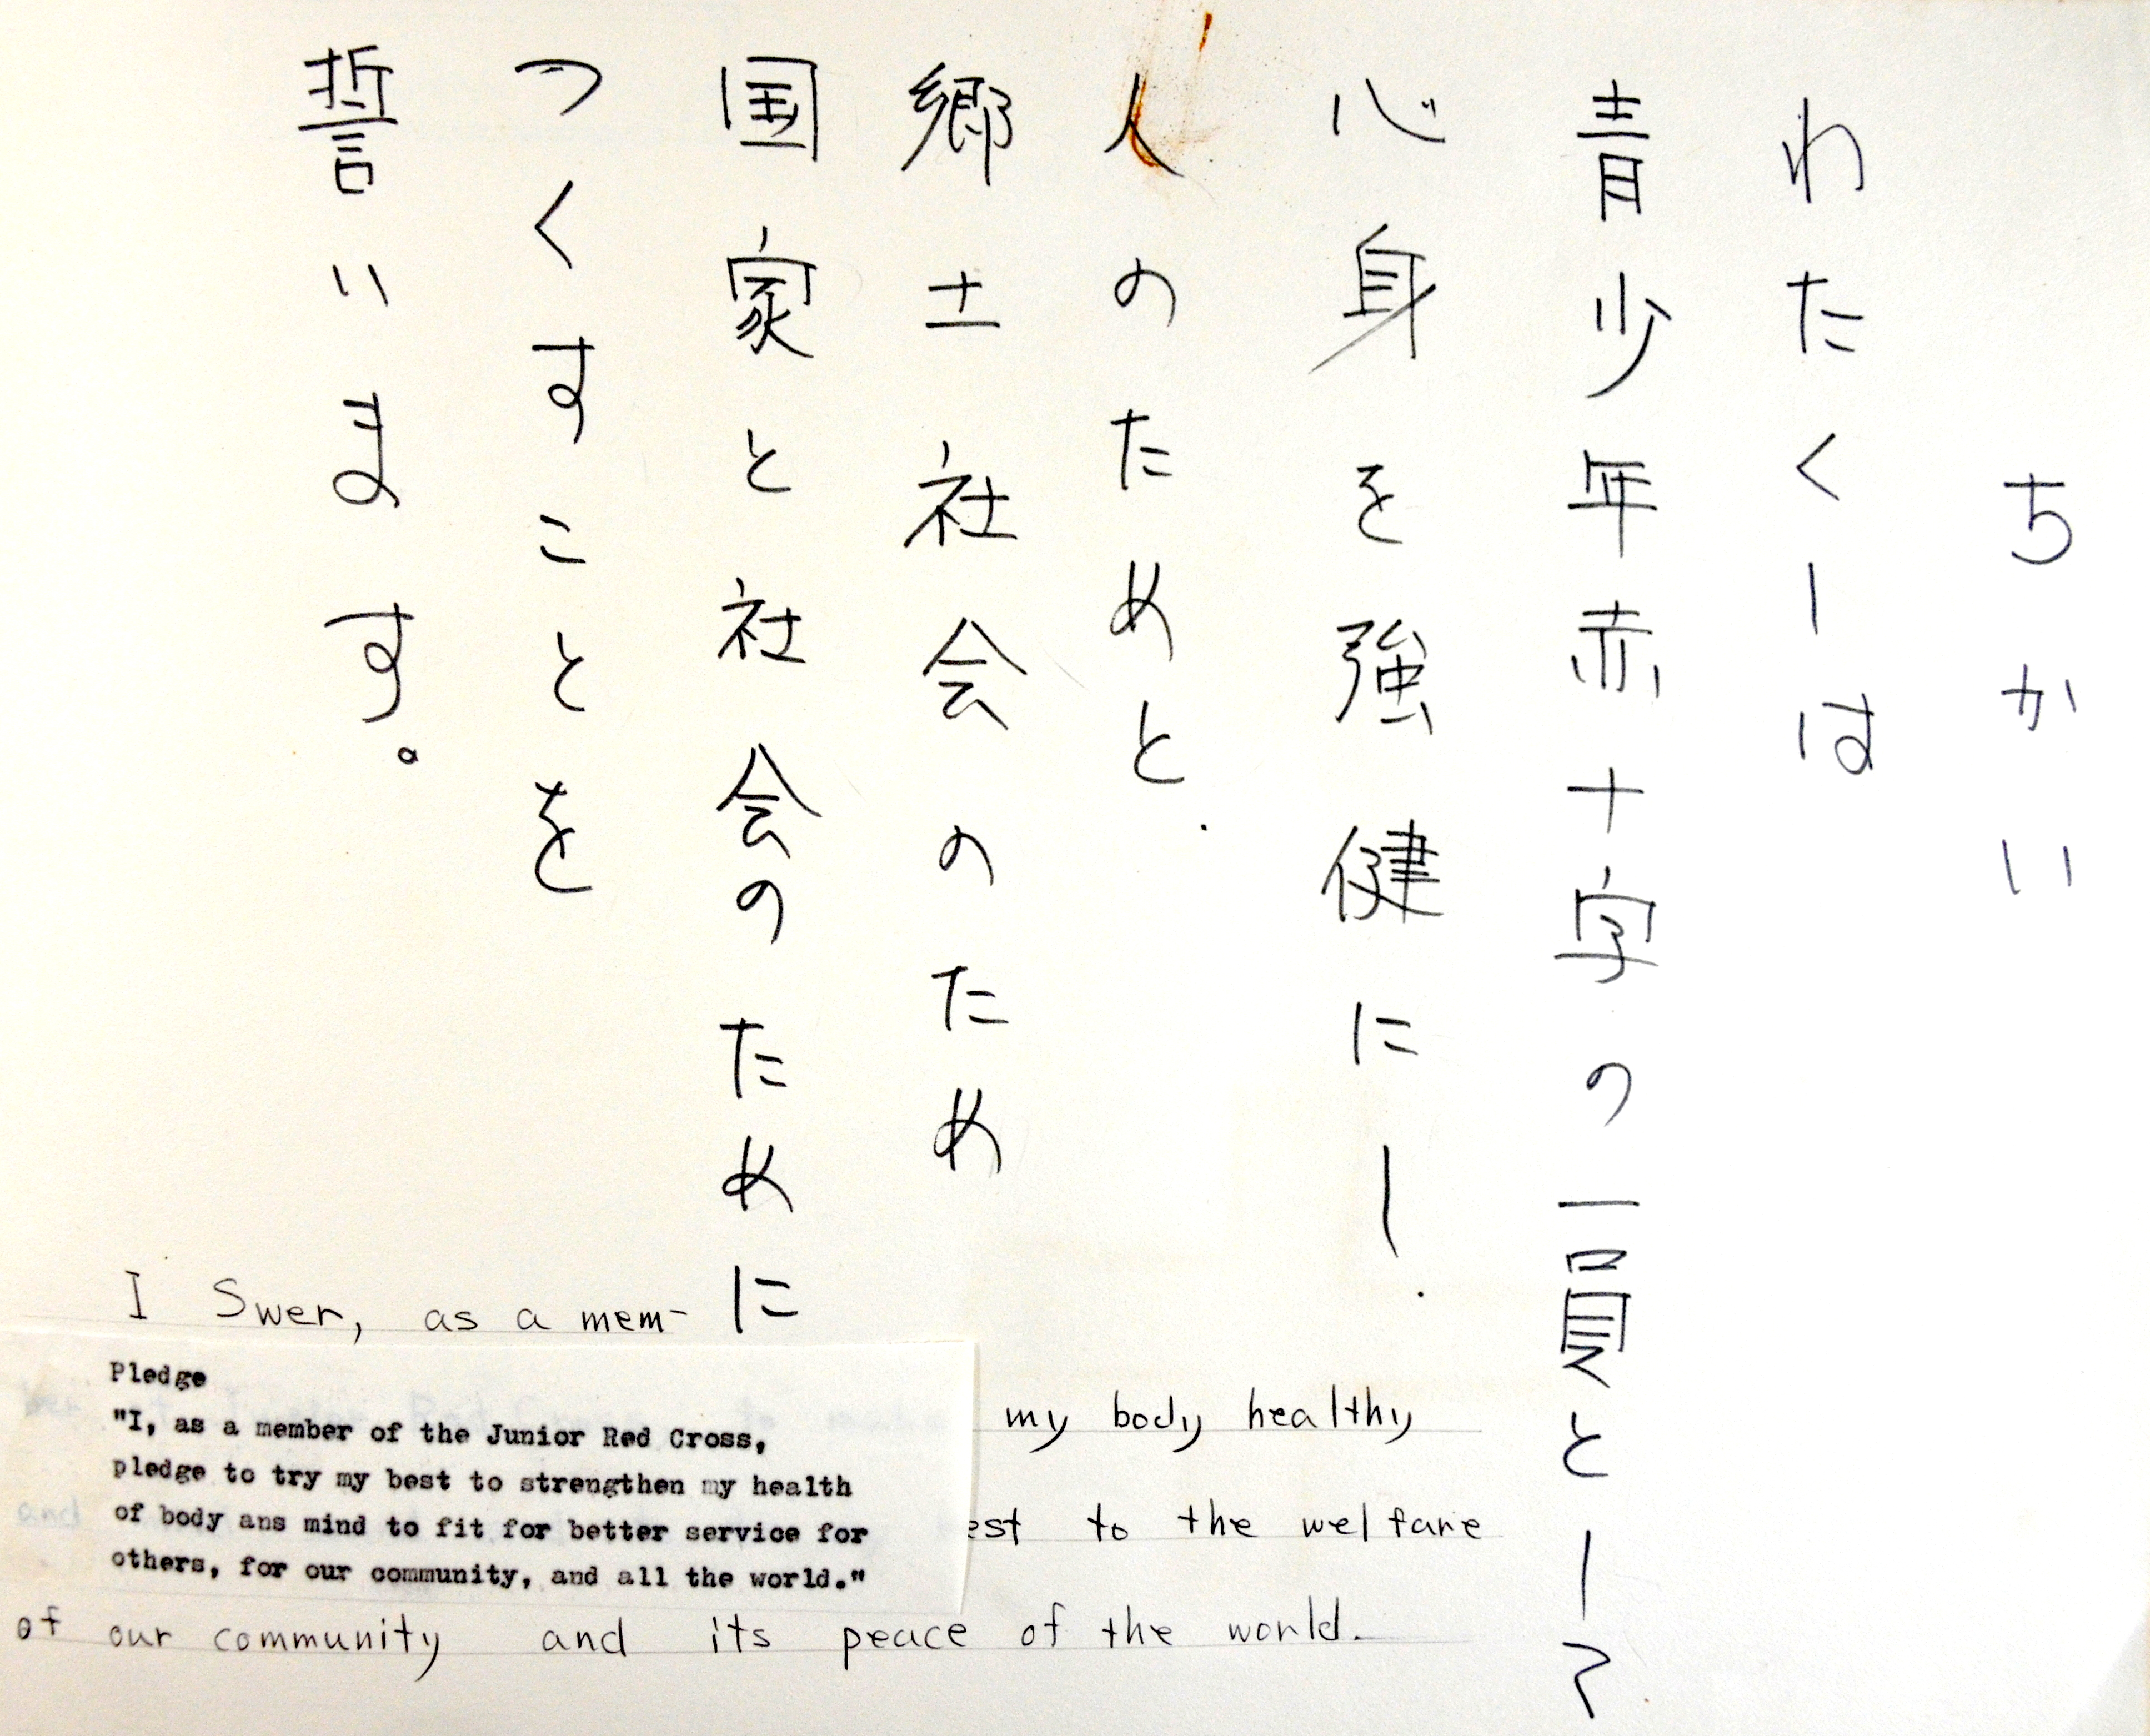 ちかい
わたくしは
青少年赤十字の一員として
心身を強健にし
人のためと
郷土社会のため
国家と社会のために
つくすことを
誓います。
I Swer, as a mem-
Pledge
"I, as a member of the Junior Red Cross,
pledge to try my best to strengthen my health
of body ans mind to fit for better service for
others, for our community, and all the world."
my body healthy
to the welfare
of our community and its peace of the world.